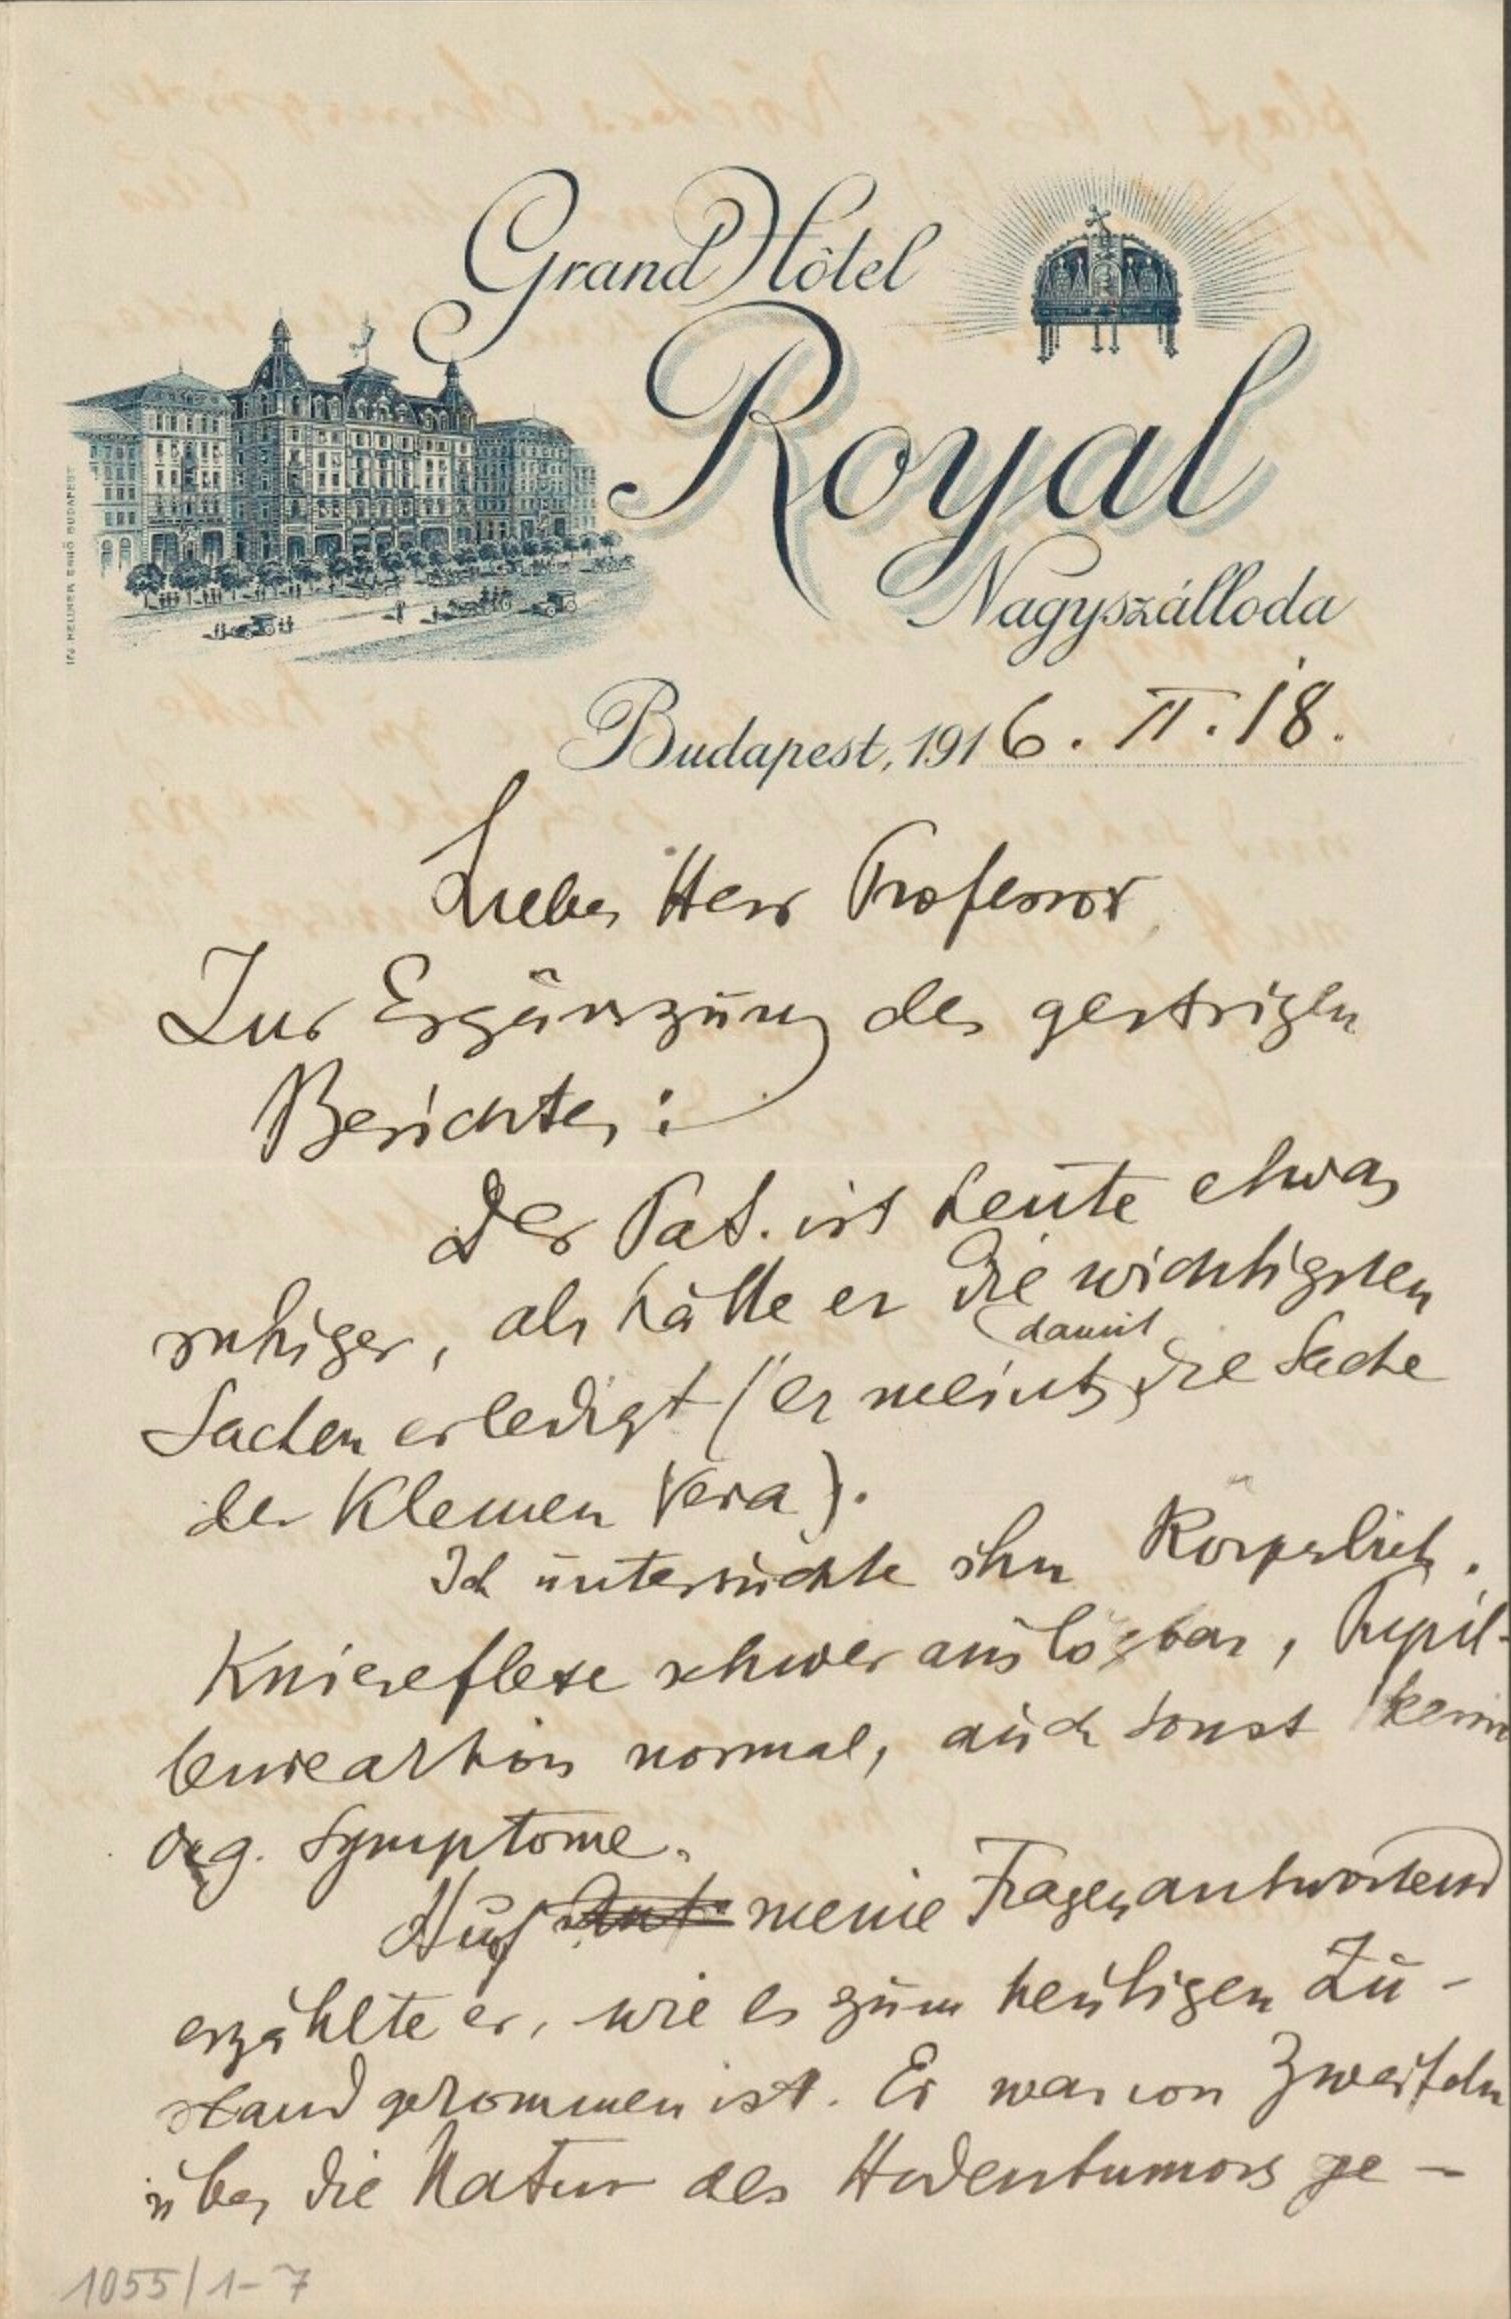 Grand Hôtel
Royal
Nagyszálloda
Budapest, 1916. II. 18.
Lieber Herr Professor
Zur Ergänzung des gestrigen
Berichtes:
Der Pat. ist heute etwas
ruhiger, als hätte er die wichtigsten
damit
Sachen erledigt (er meint die Sache
der kleinen Vera).
Ich untersuchte ihn körperlich.
Kniereflexe schwer auslösbar, Pupil-
lenreaktion normal, auch sonst keine
org. Symptome.
Auf meine Fragen antwortend
erzählte er, wie es zum heutigen Zu-
stand gekommen ist. Er war von Zweifeln
über die Natur des Hodentumors ge-
1055/1-7